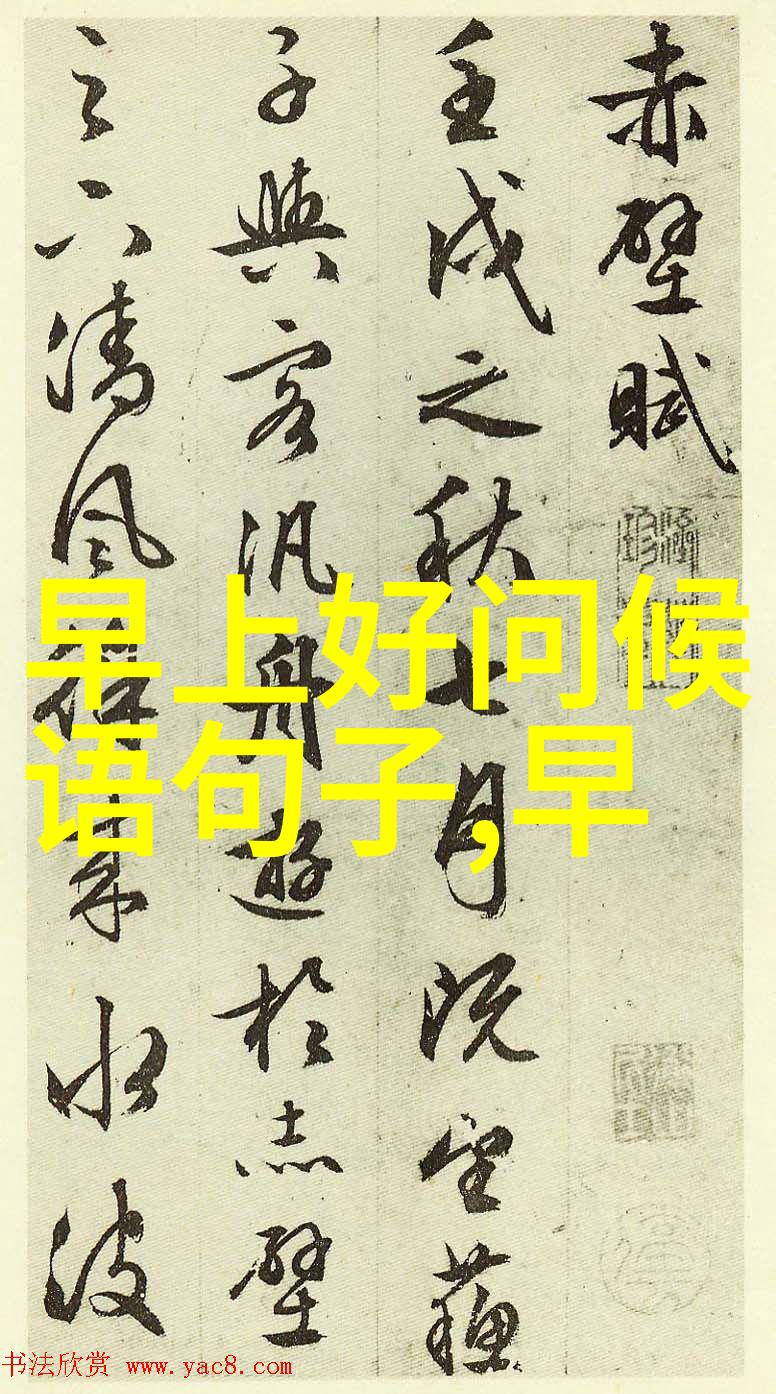 赤壁賦
壬戌之秋七月既望蘇
子與客汎舟遊於赤壁
之下清風徐來水波
早上好问候
语句子,早
书法欣赏 www.yac8.com